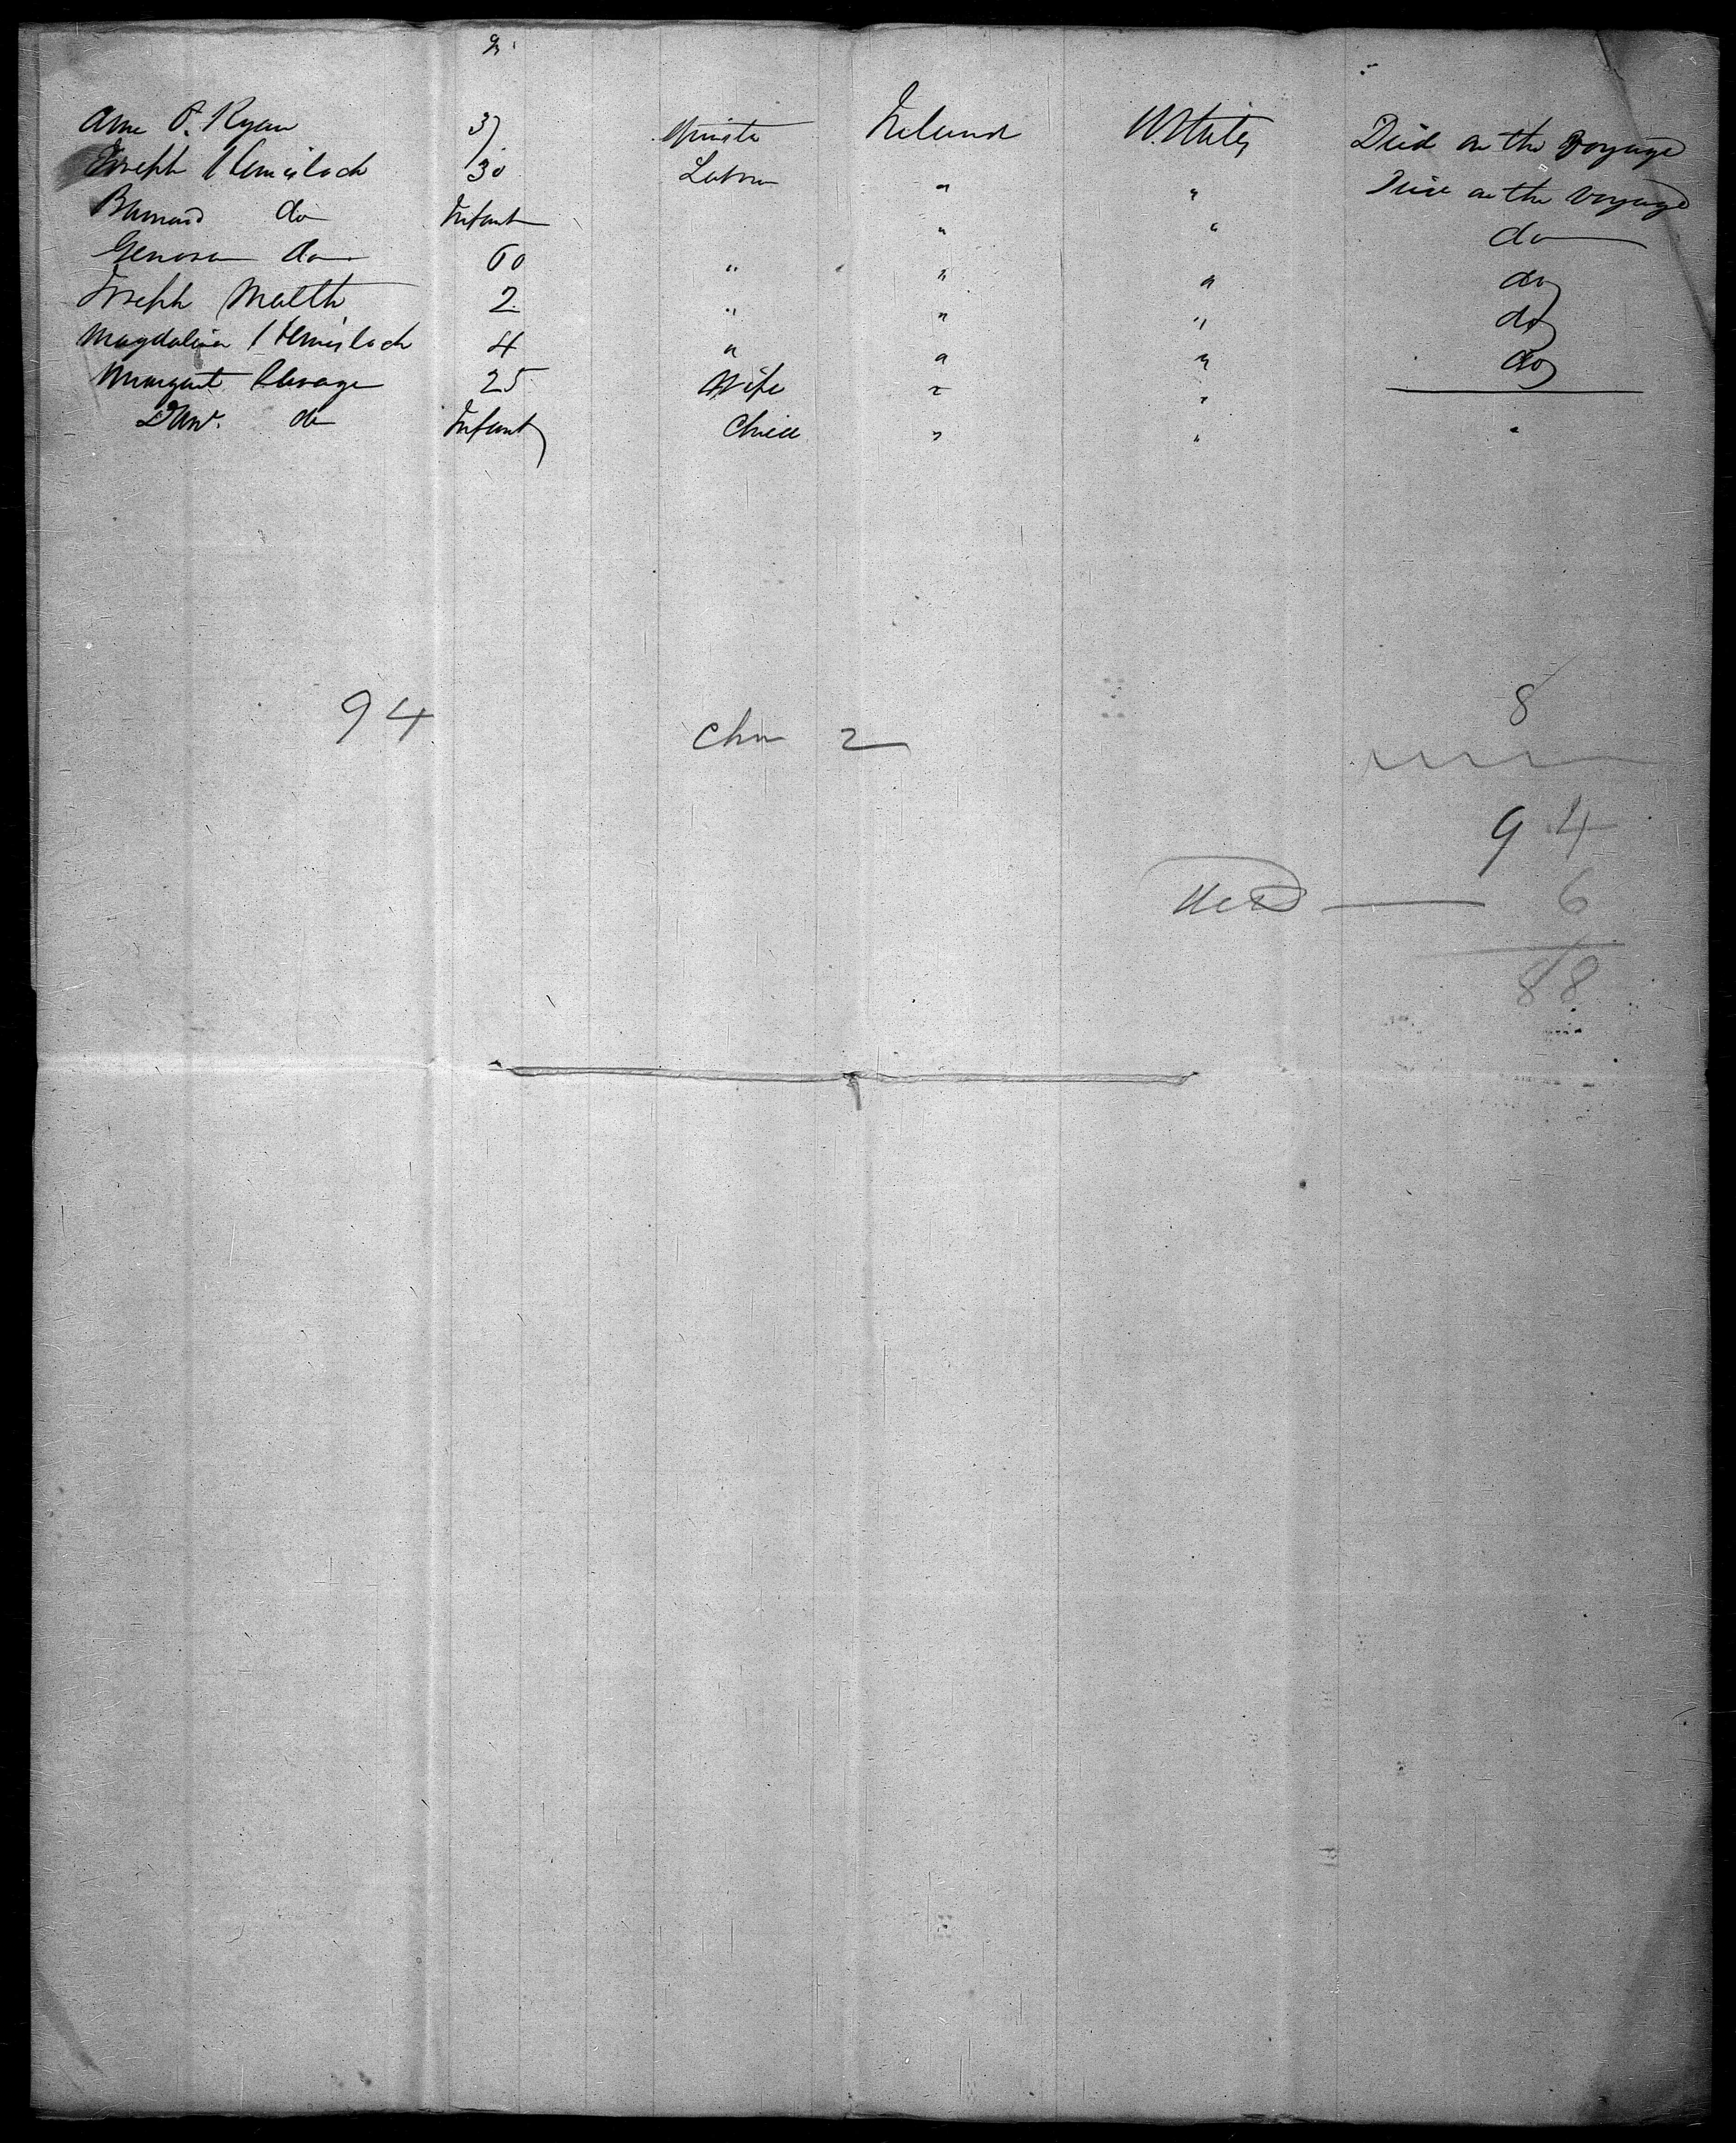 Ann O. Ryan 3 Ireland U. States Died on the voyage
Joseph 30 Labour " " Died on the voyage
Barnard do Infant " " do
do 60 " " " do
Joseph 2 " " " do
Magdalina 4 " " " do
Margaret 25 Wife " "
do Infant Child " "
94 chn 2 8
94
Died — 6
88